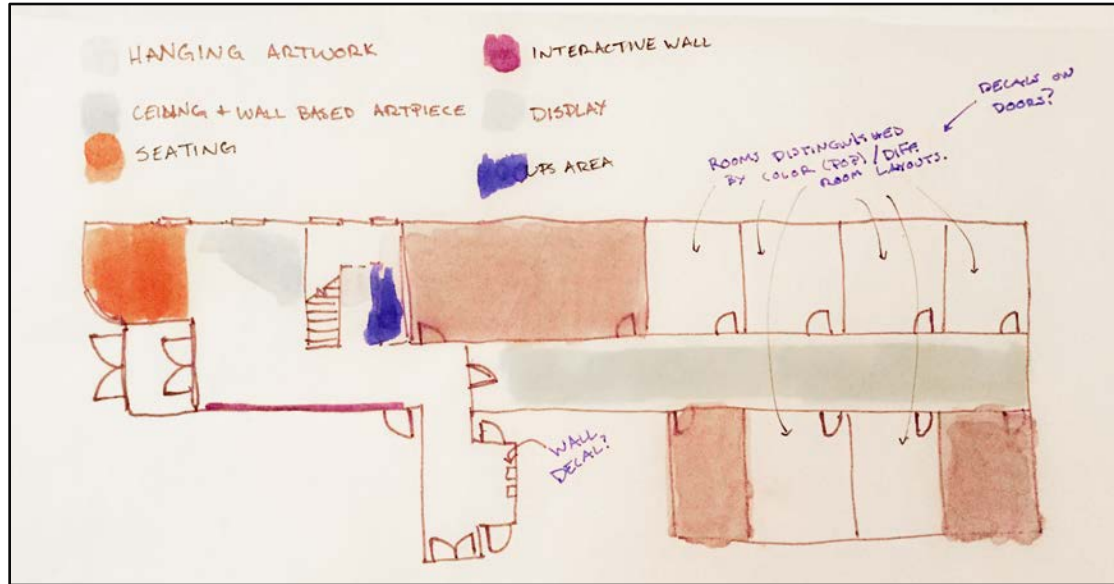 HANGING ARTWORK
CEILING + WALL BASED ARTPIECE
SEATING
INTERACTIVE WALL
DISPLAY
UPS AREA
DECALS ON
DOORS?
ROOMS DISTINGUISHED
BY COLOR (POP) / DIFF.
ROOM LAYOUTS.
WALL
DECAL?